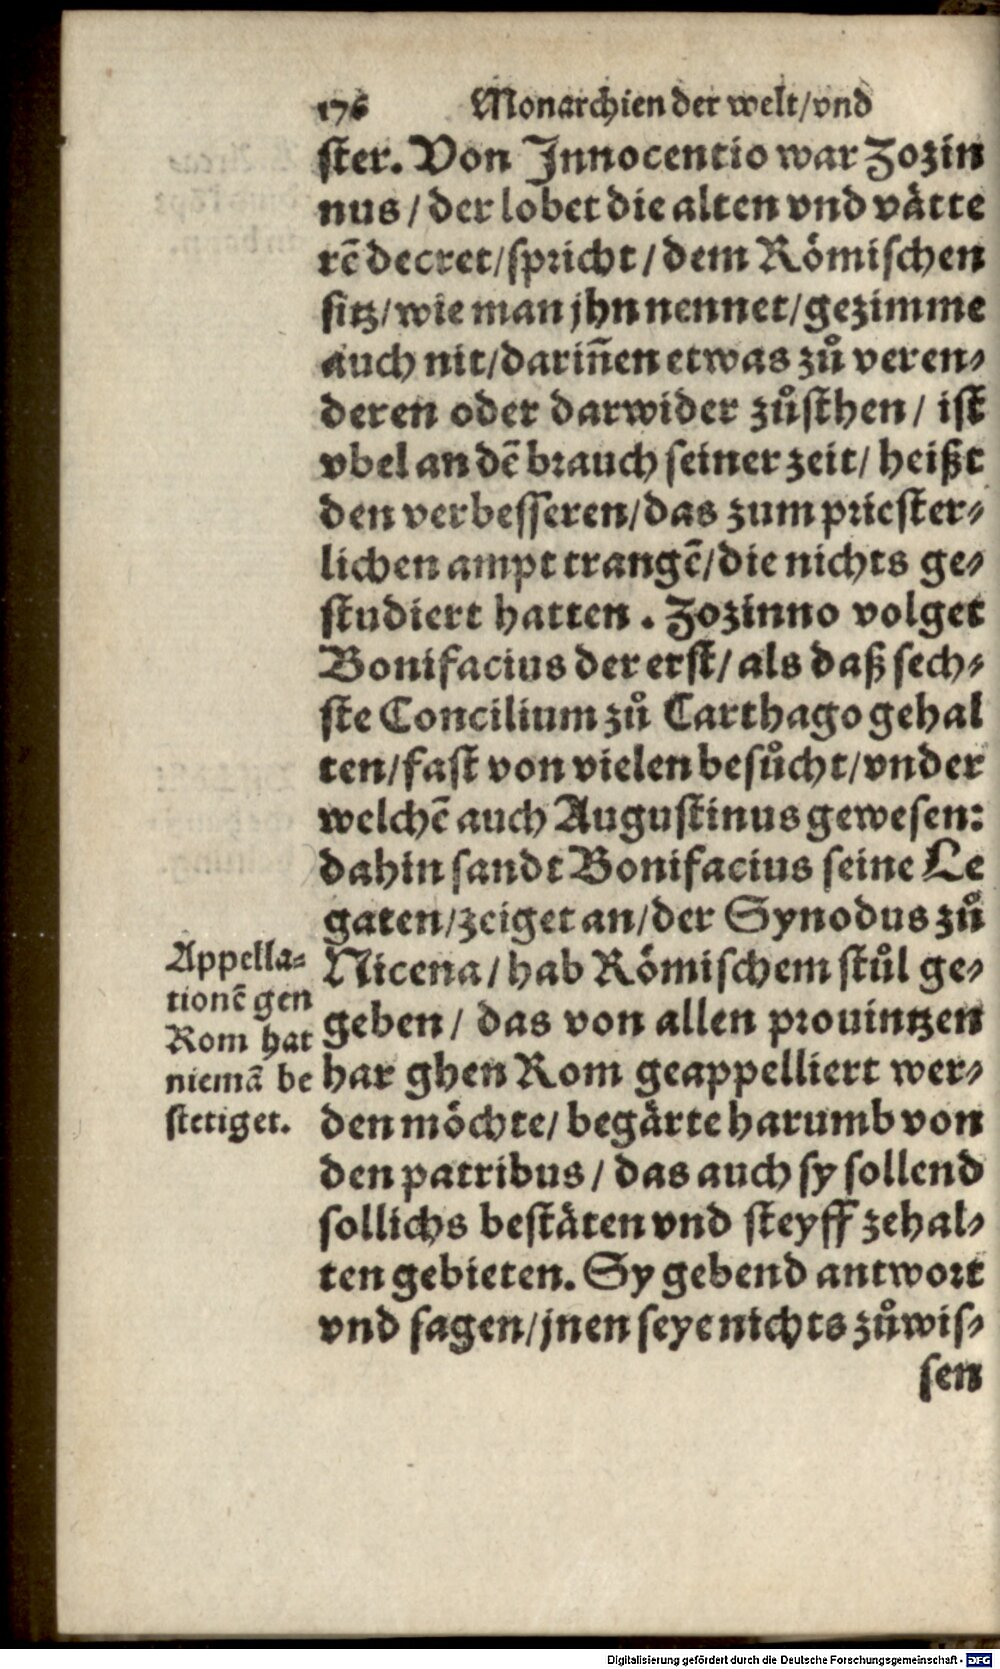 176 Monarchien der welt/vnd
ster. Von Innocentio war Zozin
nus/der lobet die alten vnd vätte
rē decret/spricht/dem Römischen
sitz/wie man jhn nennet/gezimme
auch nit/dariñen etwas zů veren⸗
deren oder darwider zůsthen/ ist
vbel an dē brauch seiner zeit/ heißt
den verbesseren/das zum priester⸗
lichen ampt trangē/die nichts ge⸗
studiert hatten. Zozinno volget
Bonifacius der erst/als daß sech⸗
ste Concilium zů Carthago gehal
ten/fast von vielen besůcht/vnder
welchē auch Augustinus gewesen:
dahin sandt Bonifacius seine Le
gaten/zeiget an/der Synodus zů
Nicena/hab Römischem stůl ge⸗
geben/ das von allen prouintzen
har ghen Rom geappelliert wer⸗
den möchte/ begärte harumb von
den patribus/ das auch sy sollend
sollichs bestäten vnd steyff zehal⸗
ten gebieten. Sy gebend antwort
vnd sagen/jnen seye nichts zůwis⸗
sen
Appella⸗
tionē gen
Rom hat
niemā be
stetiget.
Digitalisierung gefördert durch die Deutsche Forschungsgemeinschaft - DFG